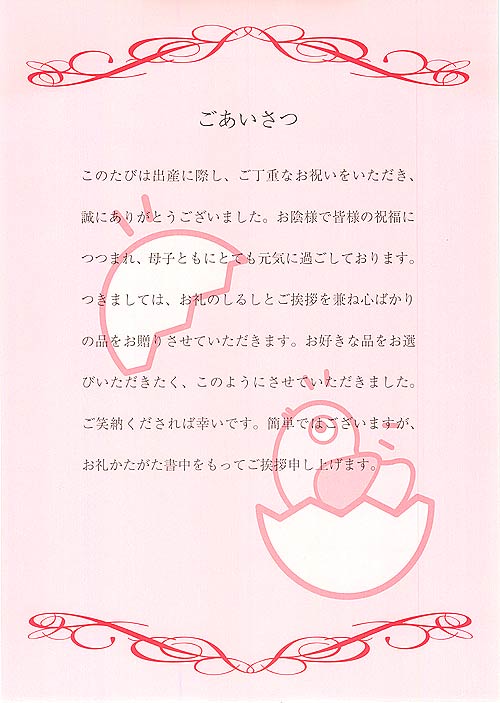 ごあいさつ
このたびは出産に際し、ご丁重なお祝いをいただき、
誠にありがとうございました。お陰様で皆様の祝福に
つつまれ、母子ともにとても元気に過ごしております。
つきましては、お礼のしるしとご挨拶を兼ね心ばかり
の品をお贈りさせていただきます。お好きな品をお選
びいただきたく、このようにさせていただきました。
ご笑納くだされば幸いです。簡単ではございますが、
お礼かたがた書中をもってご挨拶申し上げます。